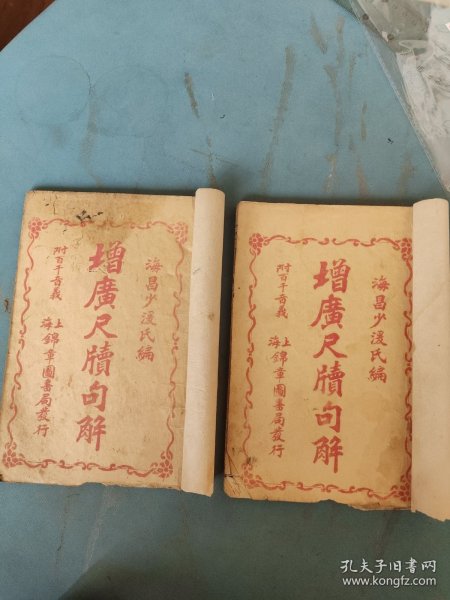 海昌少湲氏編
增廣尺牘句解
附百千音義
上海錦章圖書局發行
海昌少湲氏編
增廣尺牘句解
附百千音義
上海錦章圖書局發行
孔夫子旧书网
www.kongfz.com